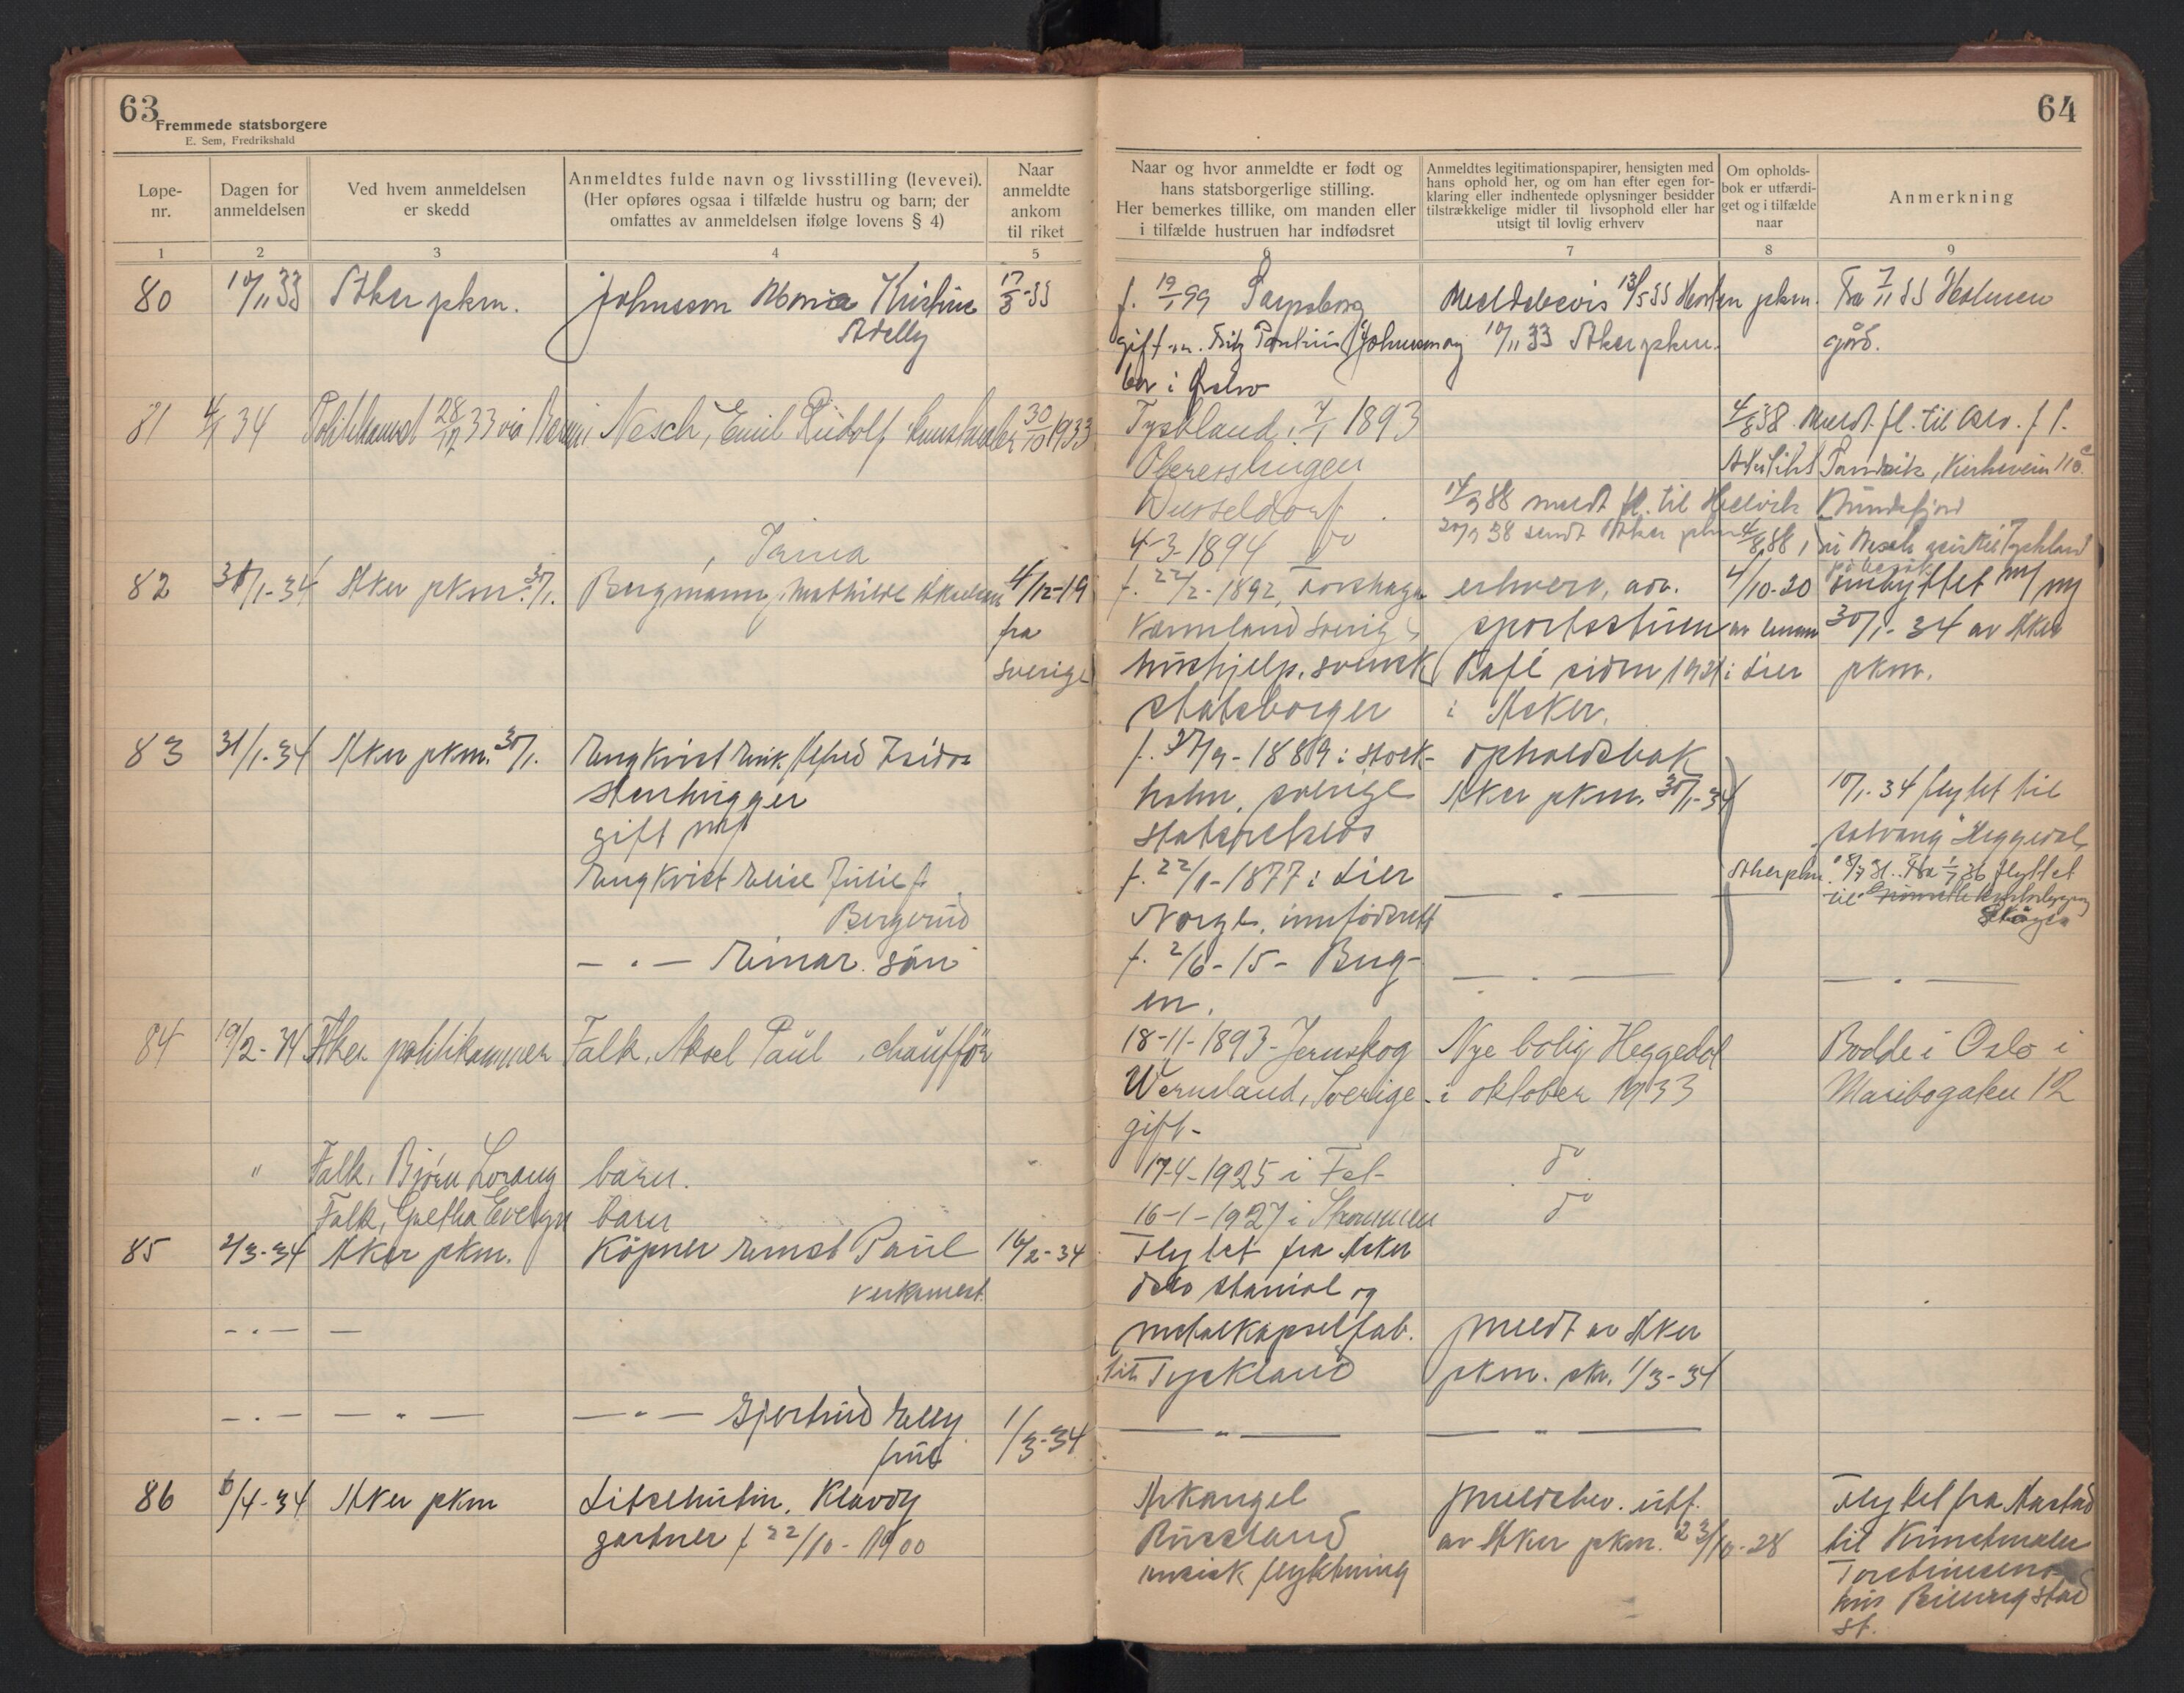 63
Fremmede statsborgere
E. Sem, Fredrikshald
Løpe-
nr.
Dagen for
anmeldelsen
Ved hvem anmeldelsen
er skedd
Anmeldtes fulde navn og livsstilling (levevei).
(Her opføres ogsaa i tilfælde hustru og barn; der
omfattes av anmeldelsen ifølge lovens § 4)
Naar
anmeldte
ankom
til riket
1 2 3 4 5
80 10/11 33 Aker pkm. Johnsson Maria Kristine 17/3-33
Adelly
81 4/1 34 Politikamret 28/12 33 via Nesch, Emil Rudolf kunstmaler 30/10 1933
, Janna
82 31/1-34 Aker pkm. 30/1. Bergmann, Mathilde 4/12-19
fra
Sverige
83 31/1-34 Aker pkm. 30/1. Engkvist Erik Alfred Isidor
stenhugger
gift m/
Engkvist Elise Julie f.
Bergerud
— " — Einar. sön
84 19/2-34 Aker politikammer Falk, Aksel Paul, chauffør
" Falk, Bjørn Lorang barn.
Falk, Gretha Evelyn barn
85 2/3-34 Aker pkm. Köpner Ernst Paul 16/2-34
verksmest.
— " — —
— " — — " — — " — Gjertrud Elly 1/3-34
frue
86 6/4-34 Aker pkm Litschutin, Klavdy
gartner f 22/10-1900
64
Naar og hvor anmeldte er født og
hans statsborgerlige stilling.
Her bemerkes tillike, om manden eller
i tilfælde hustruen har indfødsret
Anmeldtes legitimationspapirer, hensigten med
hans ophold her, og om han efter egen for-
klaring eller indhentede oplysninger besidder
tilstrækkelige midler til livsophold eller har
utsigt til lovlig erhverv
Om opholds-
bok er utfærdi-
get og i tilfælde
naar
Anmerkning
6 7 8 9
f. 19/1 99 Sarpsborg Meldebevis 13/5 33 Horten pkm. Fra 7/11 33 Holmen
gift m. Fritz Johnsson og 10/11 33 Aker pkm. gård.
bor i
Tyskland, 7/1 1893 4/8 38. Meldt fl. til Oslo. f f.
Oberesslingen Sandvik, Kirkeveien 110
Düsseldorf 14/3 38 meldt fl. til Hellvik Bundefjord
4-3-1894 do 20/3 38 sendt Aker pkm
f. 22/2-1892, Forshaga erhverv, adr. 4/10-20 ombyttet m/ ny
Vermland Sverige sportsstuen av lensm 30/1-34 av Aker
hushjelp, svensk Kafé siden 1931 i Lier pkm.
statsborger i Asker.
f. 27/9-1889 i Stock- opholdsbok
holm, Sverige Aker pkm. 30/1-34 10/1-34 flyttet til
statsretsløs Solvang Heggedal
f. 22/1-1877 i Lier — " — Aker pkm. Fra 1/7 36 flyttet
Norge, innfödsrett til
f. 2/6-15- Bug- — " — — " —
en.
18-11-1893-Jernskog Nye bolig Heggedal Bodde i Oslo i
Wermland, Sverige- i oktober 1933 Maribogaten 12
gift-
17-4-1925 i Fet- do
16-1-1927 i Strømmen do
Flyttet fra Asker
Oslo staniol og
metalkapselfab. meldt av Aker
til Tyskland pkm. skr. 1/3-34
— " — — " —
Arkangel meldebev. utf. Flyttet fra Aastad
Russland av Aker pkm. 23/10-28 til Kunstmaler
russisk flyktning Torsteinsens
hus Billingstad
st.